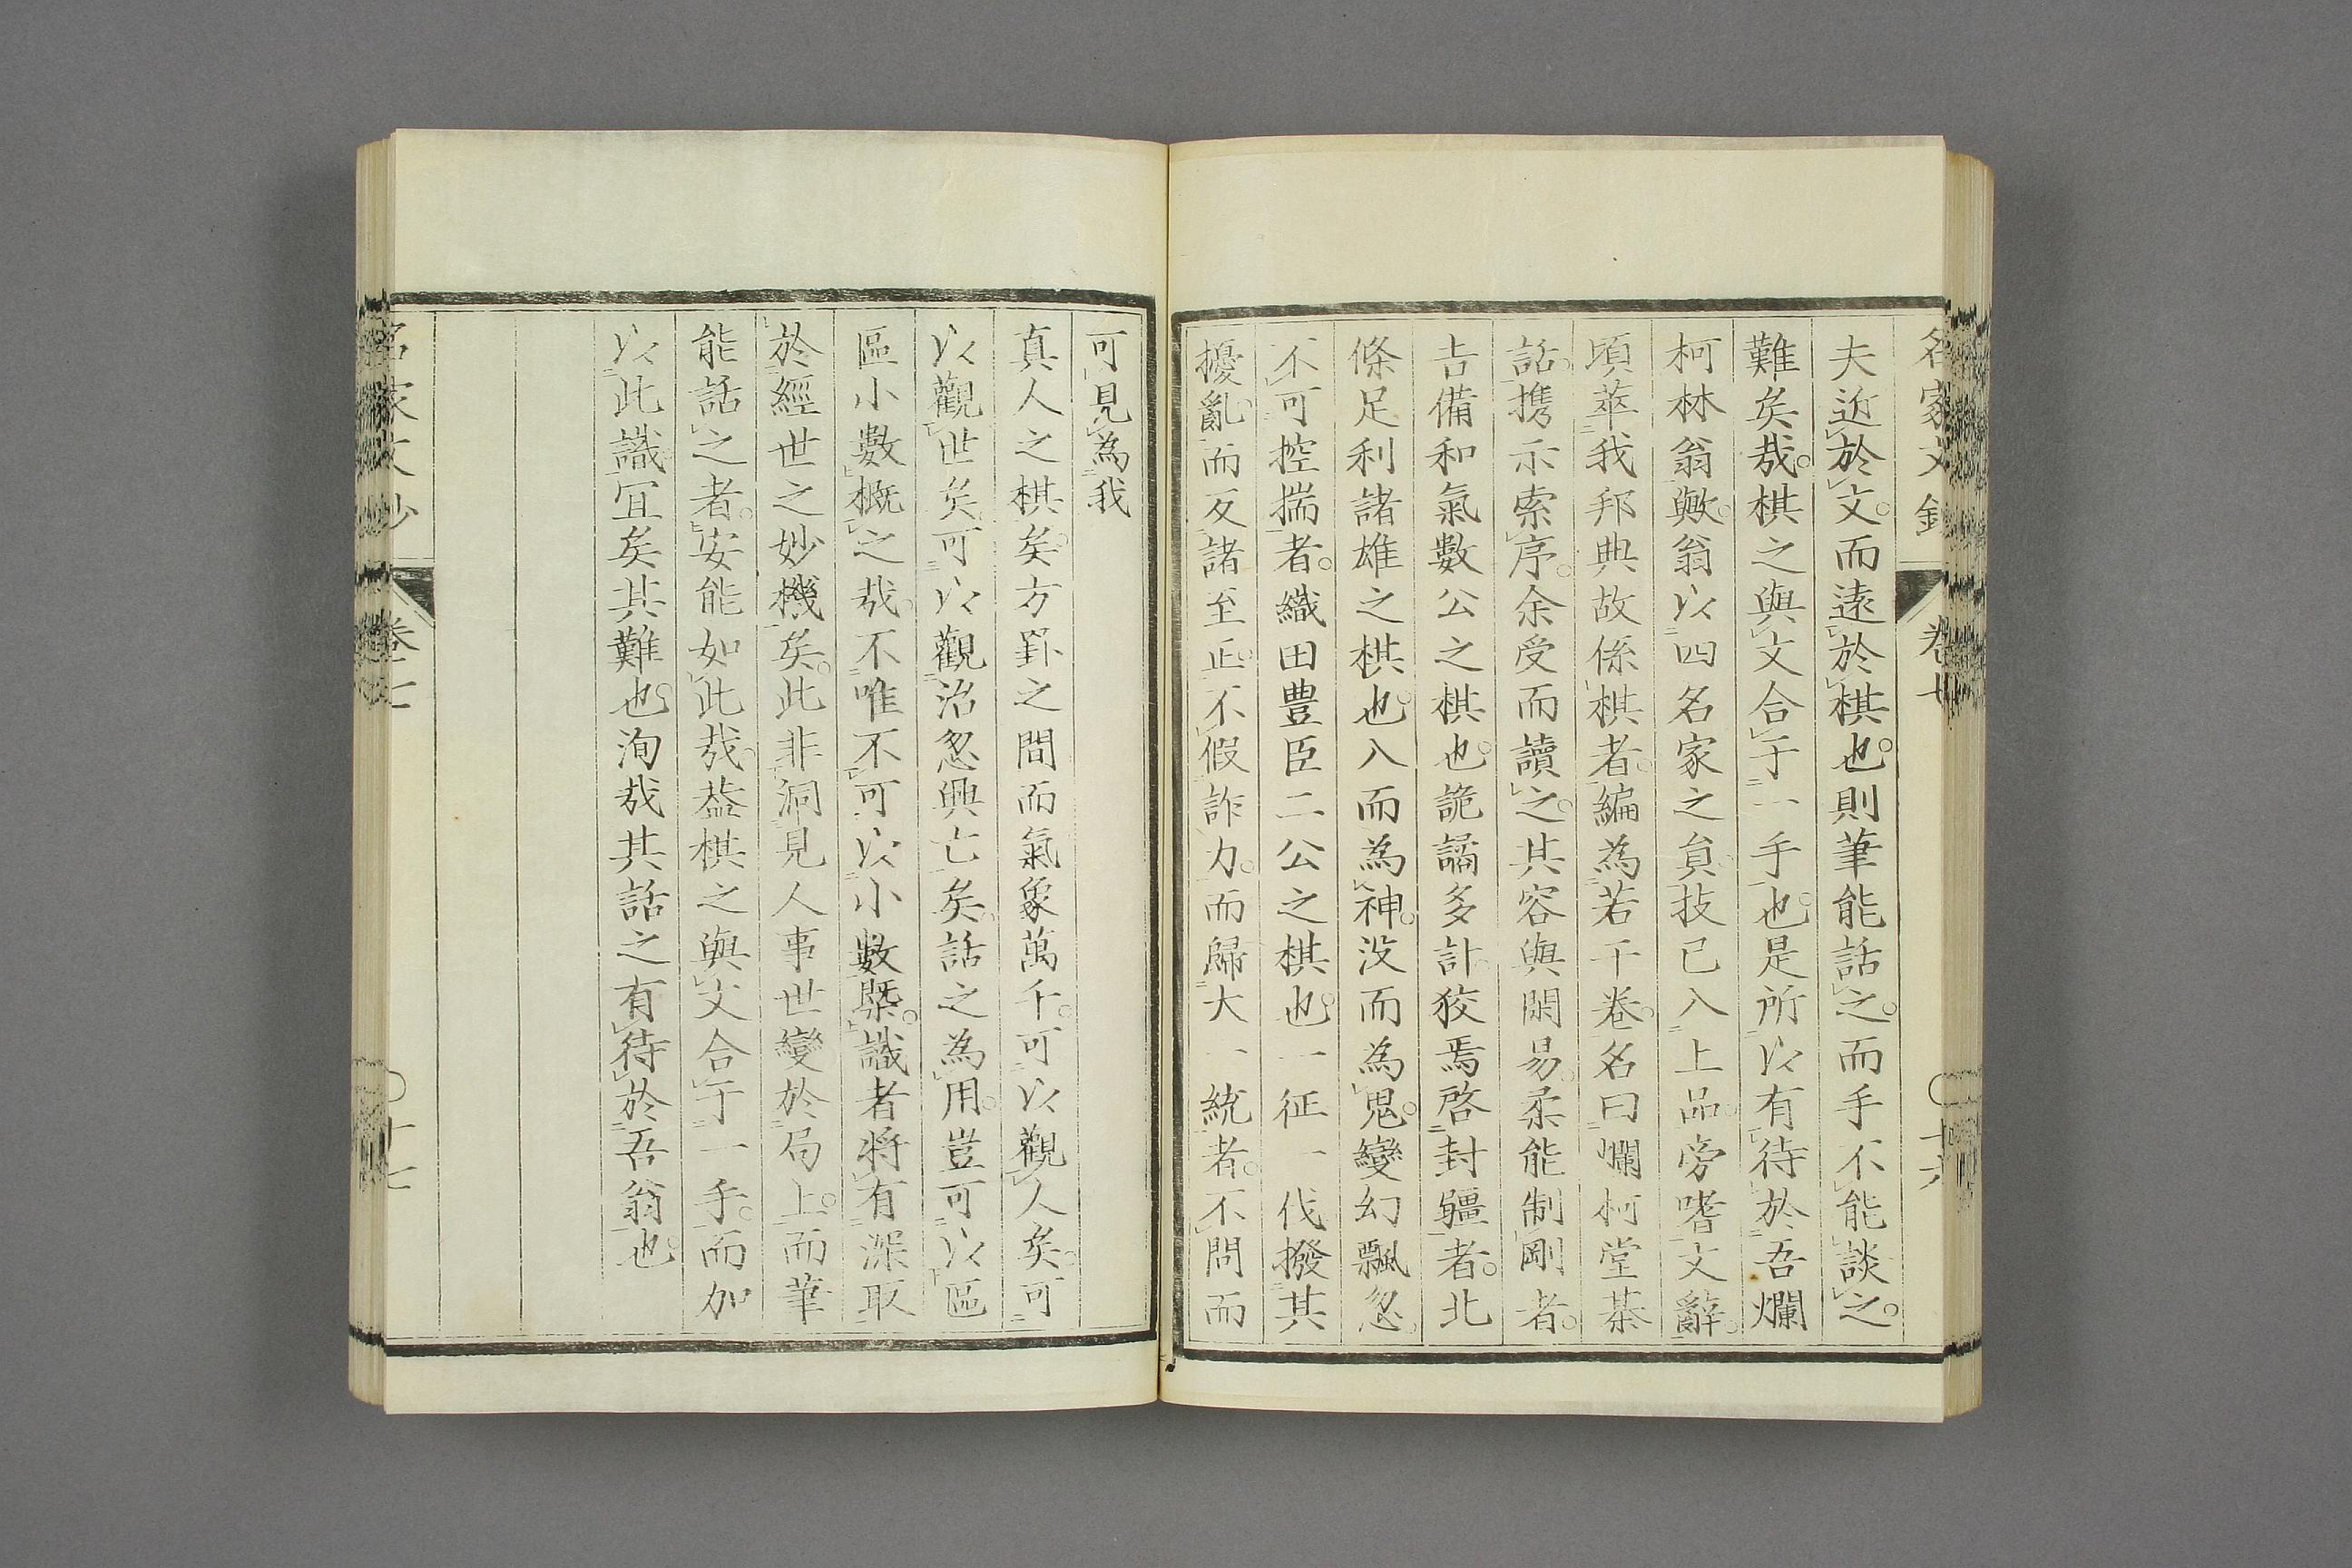 名家文鈔
卷廿
夫近於文。而遠於棋也。則筆能話之。而手不能談之。
難矣哉。棋之與文合于一手也。是所以有待於吾爛
柯林翁歟。翁以四名家之貟。技已入上品。旁嗜文辭。
頃萃我邦典故係棋者。編為若干卷。名曰爛柯堂棊
話。携示索序。余受而讀之。其容與閑易。柔能制剛者。
吉備和氣數公之棋也。詭譎多計。狡焉啓封疆者。北
條足利諸雄之棋也。入而為神。没而為鬼。變幻飄忽。
不可控揣者。織田豊臣二公之棋也。一征一伐。撥其
擾亂。而反諸至正。不假詐力。而歸大一統者。不問而
可見為我
真人之棋矣。方罫之間而氣象萬千。可以觀人矣。可
以觀世矣。可以觀治忽興亡矣。話之為用。豈可以區
區小數概之哉。不唯不可以小數槩。識者將有深取
於經世之妙機矣。此非洞見人事世變於局上。而筆
能話之者。安能如此哉。葢棋之與文合于一手。而加
以此識。冝矣其難也。洵哉其話之有待於吾翁也。
名家文鈔